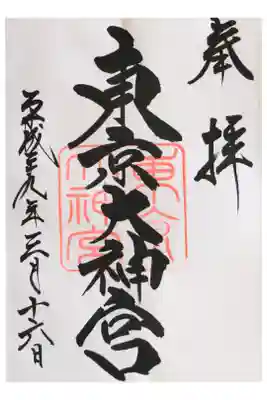 奉拝
東京大神宮
東京
大神宮
平成二九年三月十六日